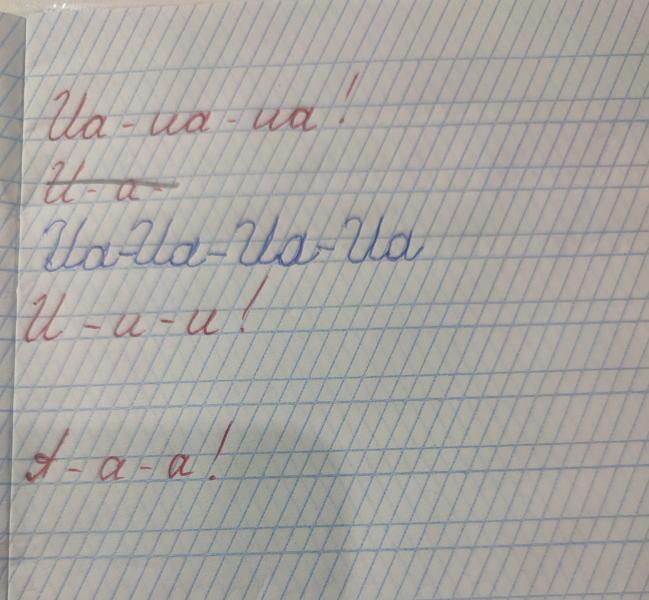 Иа - иа - иа!
И - а -
Иа-Иа-Иа-Иа
И - и - и!
А - а - а!